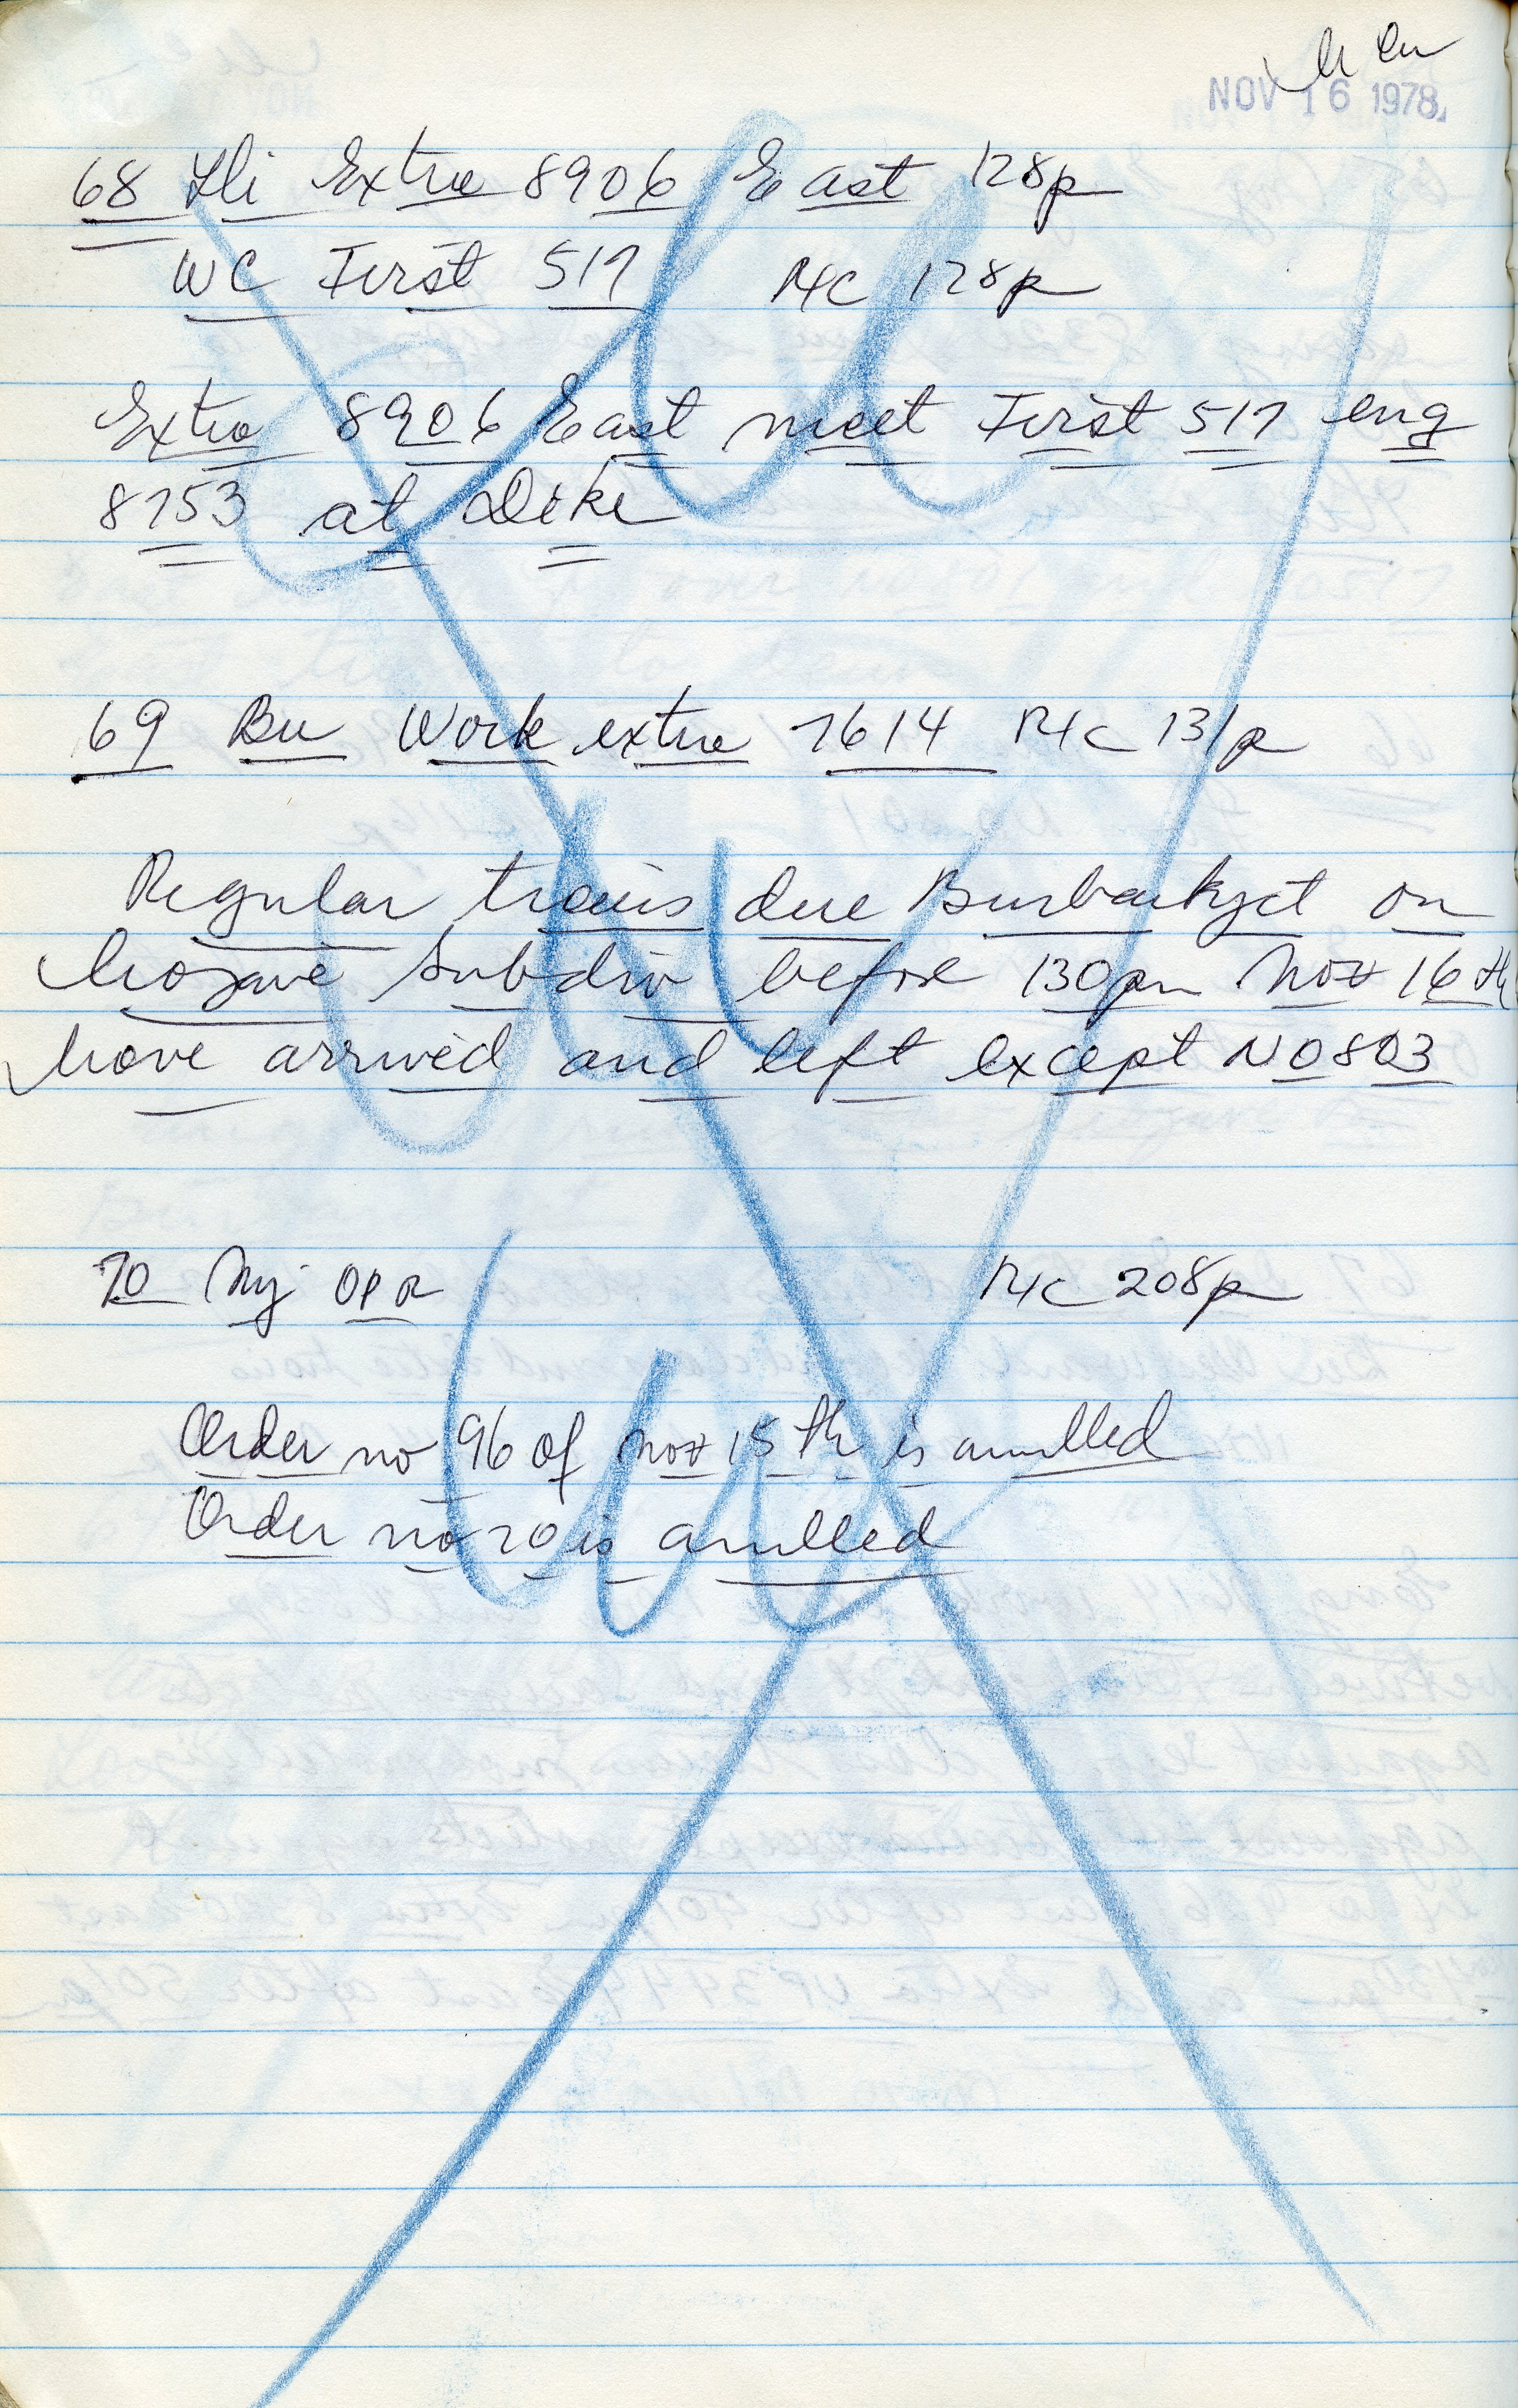 NOV 16 1978
68 Hi Extra 8906 East 128p
WC First 517 RHC 128p
Extra 8906 East meet First 517 eng
8753 at Dike
69 Bu Work extra 7614 RHC 131p
Regular trains due Burbankjct on
Mojave Subdiv before 130pm Nov 16th
have arrived and left except No 803
70 Nj Opr RHC 208p
Order no 96 of Nov 15th is annulled
Order no 70 is anulled